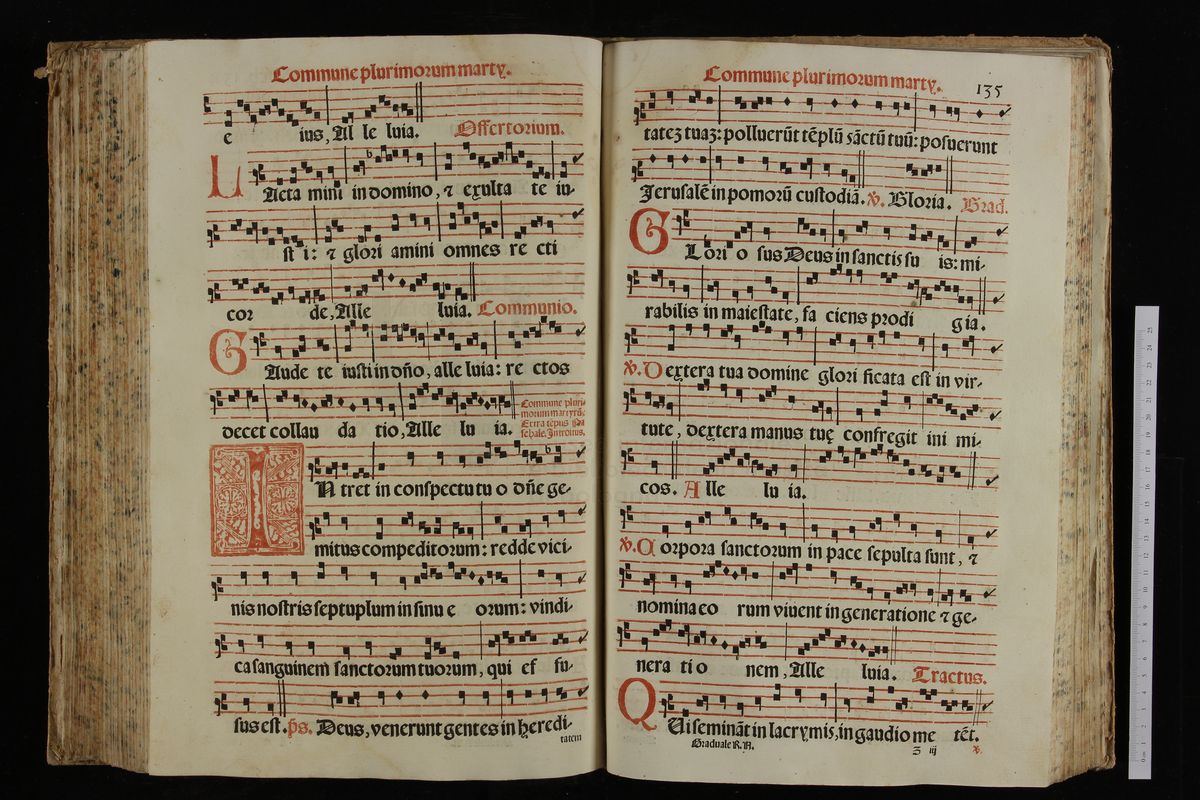 Commune plurimorum marty.
e ius, Al le luia. Offertorium.
LAeta mini in domino, ⁊ exulta te iu-
sti i: ⁊ glori amini omnes re cti
cor de, Alle luia. Communio.
GAude te iusti in dño, alle luia: re ctos
decet collau da tio, Alle lu ia.
Commune pluri
morum martyrũ
Extra tẽpus Pa
schale. Introitus.
IN tret in conspectu tu o dñe ge-
mitus compeditorum: redde vici-
nis nostris septuplum in sinu e orum: vindi-
ca sanguinem sanctorum tuorum, qui ef fu-
sus est. ps. Deus, venerunt gentes in heredi-
tatem
Commune plurimorum marty.
135
tatez tuaz: polluerũt tẽplũ sãctũ tuũ: posuerunt
Jerusalẽ in pomorũ custodiã. ℣. Gloria. Grad.
GLori o sus Deus in sanctis su is: mi-
rabilis in maiestate, fa ciens prodi gia.
℣. Dextera tua domine glori ficata est in vir-
tute, dextera manus tuę confregit ini mi-
cos. Alle lu ia.
℣. Corpora sanctorum in pace sepulta sunt, ⁊
nomina eo rum viuent in generatione ⁊ ge-
nera ti o nem, Alle luia. Tractus.
QUi seminãt in lacrymis, in gaudio me tẽt.
Graduale R. A. z iij ℣.